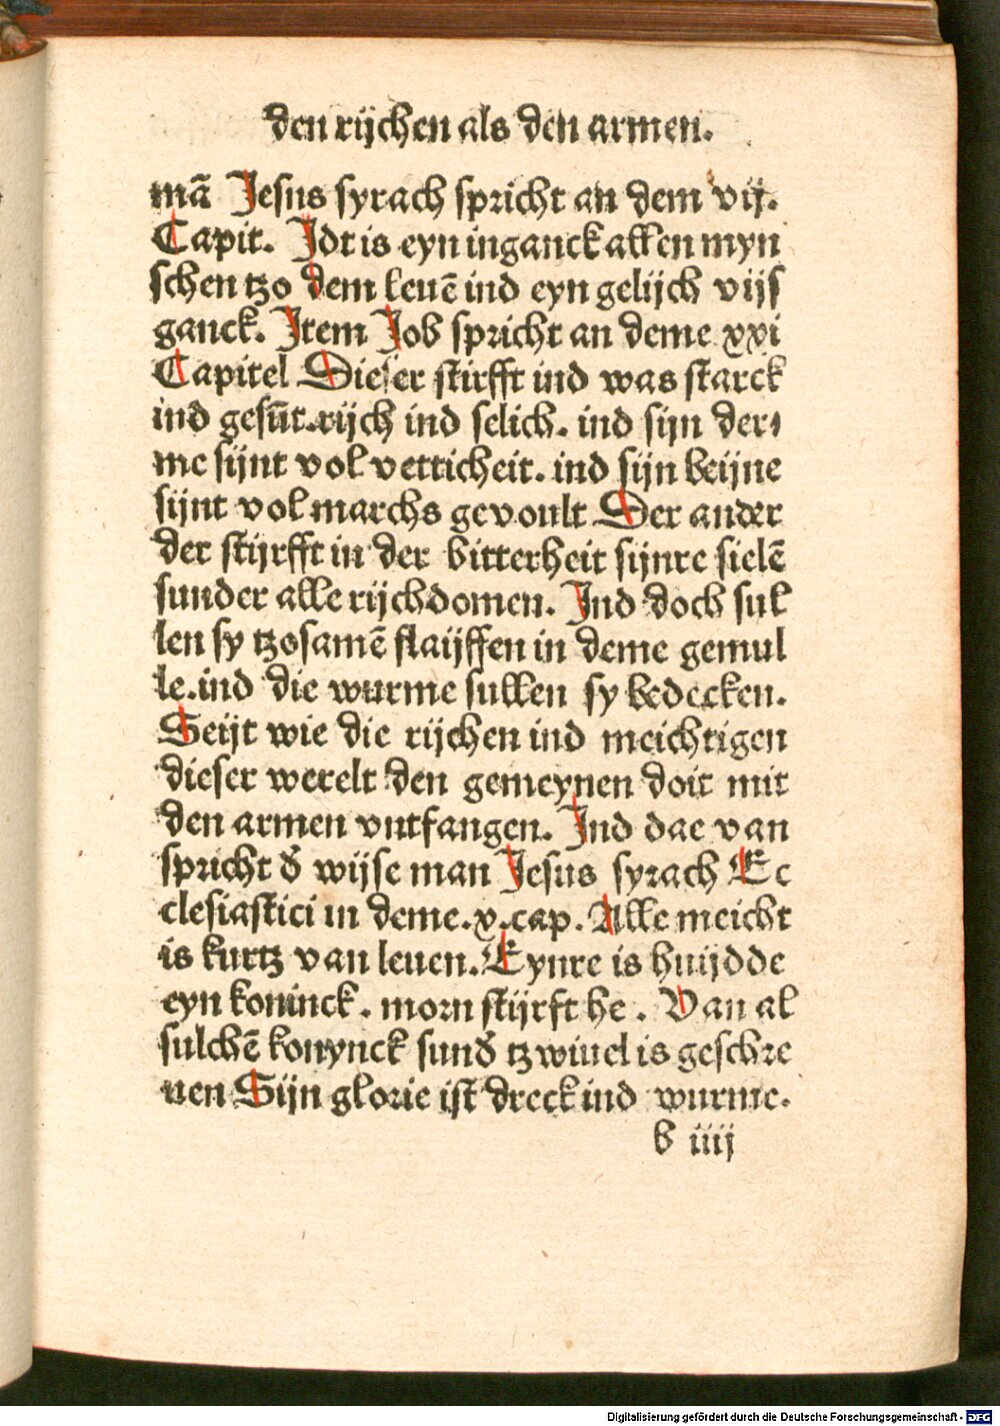 den rijchen als den armen.
mā Jesus syrach spricht an dem vij.
Capit. Jdt is eyn inganck allen myn
schen tzo dem leuē ind eyn gelijch vijs
ganck. Jtem Job spricht an deme xxi
Capitel Dieser stirfft ind was starck
ind gesūt.rijch ind selich. ind sijn der⸗
me sijnt vol vetticheit. ind sijn beijne
sijnt vol marchs gevoult Der ander
der stijrfft in der bitterheit sijnre sielē
sunder alle rijchdomen. Jnd doch sul
len sy tzosamē slaijffen in deme gemul
le.ind die wurme sullen sy bedecken.
Seijt wie die rijchen ind meichtigen
dieser werelt den gemeynen doit mit
den armen vntfangen. Jnd dae van
spricht d̄ wijse man Jesus syrach Ec
clesiastici in deme.x.cap. Alle meicht
is kurtz van leuen. Eynre is huijdde
eyn koninck. morn stijrft he. Van al
sulchē konynck sund̄ tzwiuel is geschre
uen Sijn glorie ist dreck ind wurme.
b iiij
Digitalisierung gefördert durch die Deutsche Forschungsgemeinschaft - DFG